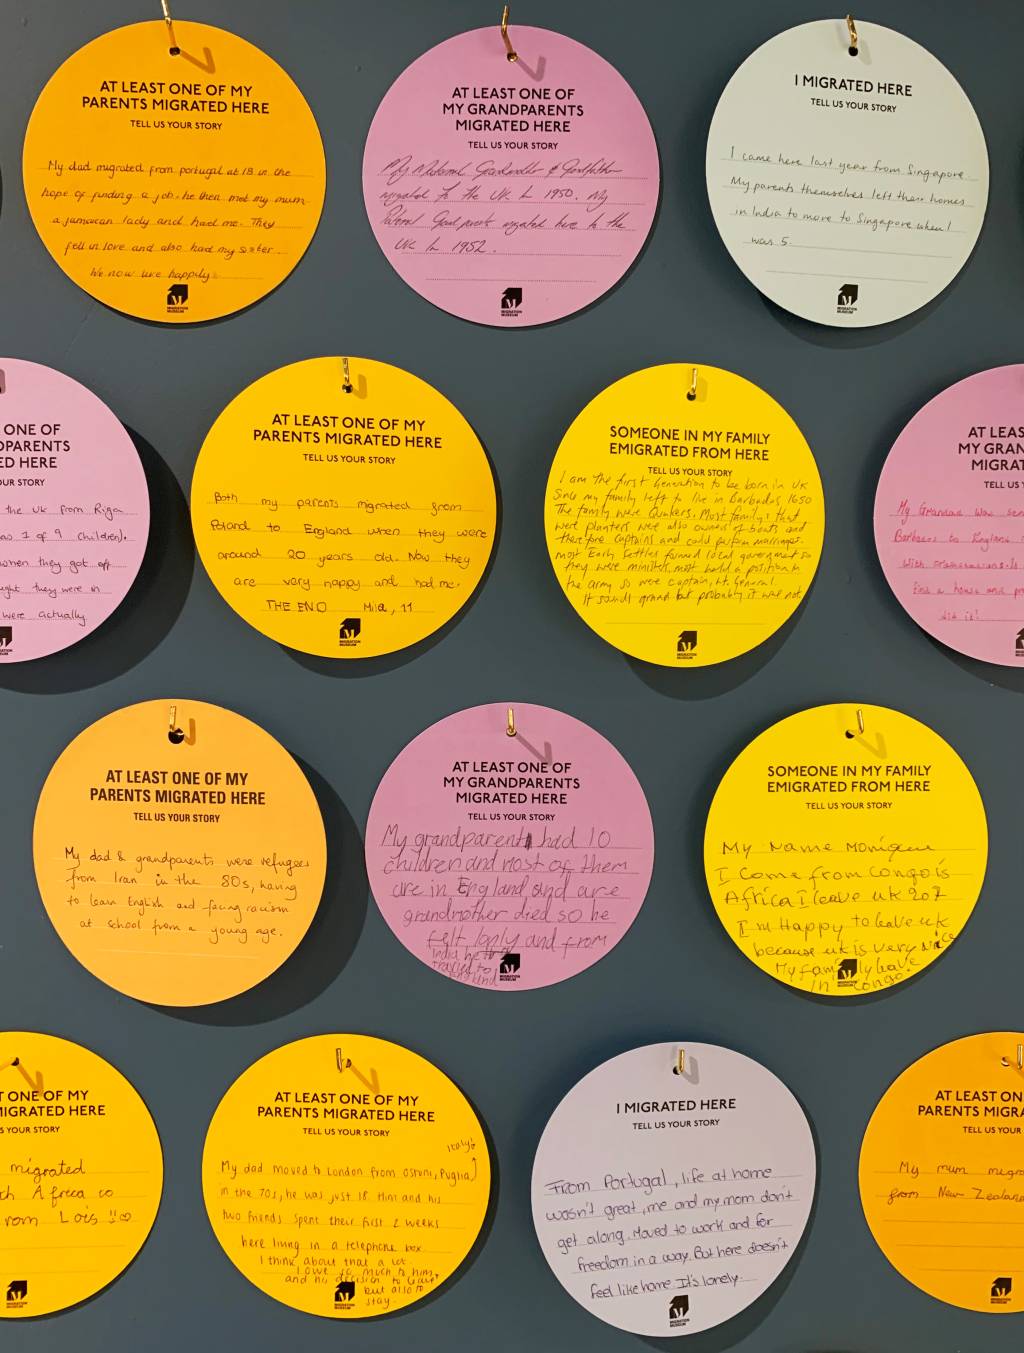 AT LEAST ONE OF MY
PARENTS MIGRATED HERE
TELL US YOUR STORY
My dad migrated from portugal at 18 in the
hope of finding a job. he then met my mum
a jamaican lady and had me. They
fell in love and also had my sister.
We now live happily.
MIGRATION
MUSEUM
AT LEAST ONE OF
MY GRANDPARENTS
MIGRATED HERE
TELL US YOUR STORY
My Maternal Grandmother & Grandfather
migrated to the UK in 1950. My
Paternal Grandparents migrated here to the
UK in 1952.
MIGRATION
MUSEUM
I MIGRATED HERE
TELL US YOUR STORY
I came here last year from Singapore.
My parents themselves left their homes
in India to move to Singapore when I
was 5.
MIGRATION
MUSEUM
ONE OF
DPARENTS
ED HERE
UR STORY
the UK from Riga
as 1 of 9 children).
when they got off
ught they were in
were actually
AT LEAST ONE OF MY
PARENTS MIGRATED HERE
TELL US YOUR STORY
Both my parents migrated from
Poland to England when they were
around 20 years old. Now they
are very happy and had me.
THE END Mila, 11
MIGRATION
MUSEUM
SOMEONE IN MY FAMILY
EMIGRATED FROM HERE
TELL US YOUR STORY
I am the first Generation to be born in UK
Since my family left to live in Barbados, 1650
The family were Quakers. Most family's that
were planters were also owners of boats and
therefore captains and could perform marriages.
most Early Settles formed local government so
they were minister, most held a position in
the army so were captain, Lt. General
It sounds grand but probably it was not.
MIGRATION
MUSEUM
AT LEAS
MY GRAN
MIGRAT
TELL US Y
My Grandad was
Barbados to England
with
find a house and
did it!
AT LEAST ONE OF MY
PARENTS MIGRATED HERE
TELL US YOUR STORY
My dad & grandparents were refugees
from Iran in the 80s, having
to learn English and facing racism
at school from a young age.
AT LEAST ONE OF
MY GRANDPARENTS
MIGRATED HERE
TELL US YOUR STORY
My grandparent had 10
children and most of them
are in England and are
grandmother died so he
felt lonly and from
India he
traveled to
MIGRATION
MUSEUM
SOMEONE IN MY FAMILY
EMIGRATED FROM HERE
TELL US YOUR STORY
My Name Monique
I Come from Congo is
Africa I leave uk 207
I'm Happy to leave uk
because uk is very Nice
My family leave
in Congo.
T ONE OF MY
MIGRATED HERE
S YOUR STORY
migrated
ch Africa to
rom Lois
MIGRATION
MUSEUM
AT LEAST ONE OF MY
PARENTS MIGRATED HERE
TELL US YOUR STORY
Italy
My dad moved to London from Ostuni, Puglia
in the 70s, he was just 18. Him and his
two friends spent their first 2 weeks
here living in a telephone box.
I think about that a lot.
I owe so much to him,
and his decision to leave
but also to
stay.
MIGRATION
MUSEUM
I MIGRATED HERE
TELL US YOUR STORY
From Portugal, life at home
wasn't great, me and my mom don't
get along. Moved to work and for
freedom in a way. But here doesn't
feel like home. It's lonely.
MIGRATION
MUSEUM
AT LEAST ON
PARENTS MIGRA
TELL US YOUR
My mum migra
from New Zealand